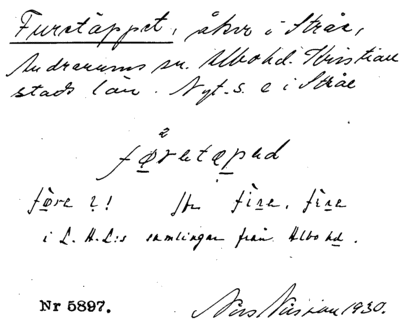 Furetäppet, åker i Stråe,
Andrarums sn. Albo hd. Kristian
stads län. Nyt. s. e i Stråe
2
føretæped
føre ?! Jfr fìre, fìre
i L. H. L:s samlingar från Albo hd.
Nr 5897.
1930.